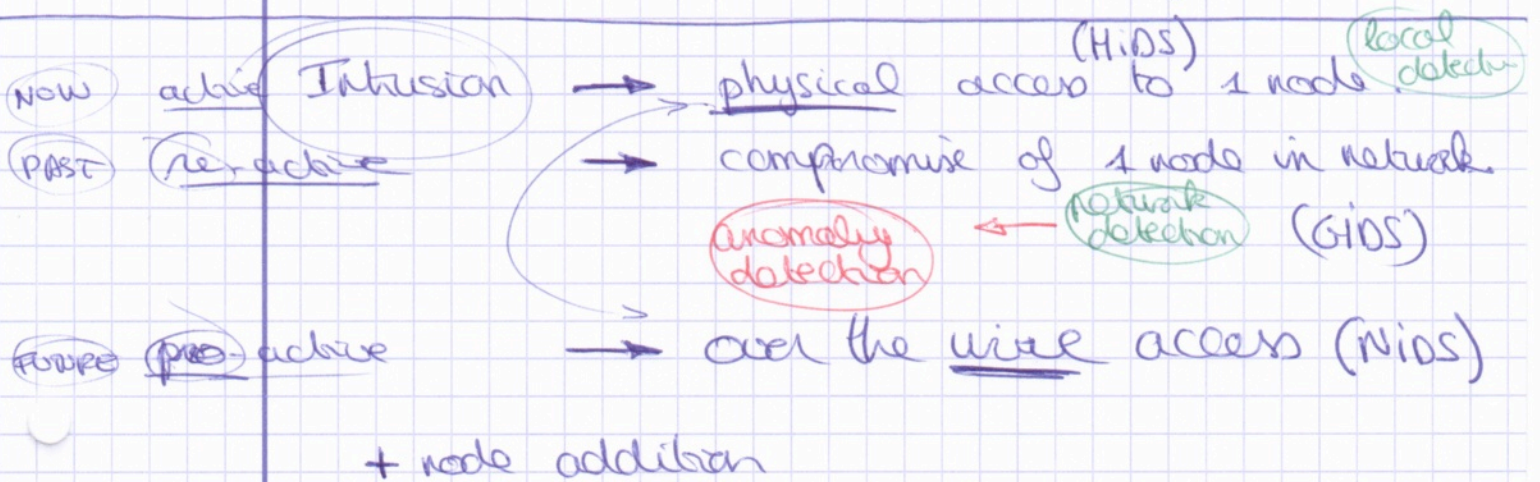 (HiDS) local detecti
NOW active Intrusion → physical access to 1 node.
PAST re-active → compromise of 1 node in network.
anomaly detection ← network detection (GiDS)
FUTURE pro-active → over the wire access (NiDS)
+ node addition